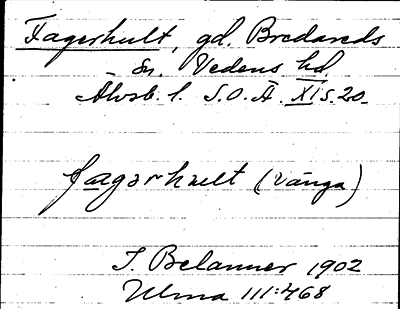 Fagerhult, gd. Bredareds
sn. Vedens hd.
Älvsb. l. S.O.Ä. XI s. 20.
fagərhult (Vånga)
T. Belanner 1902
Ulma 111:468